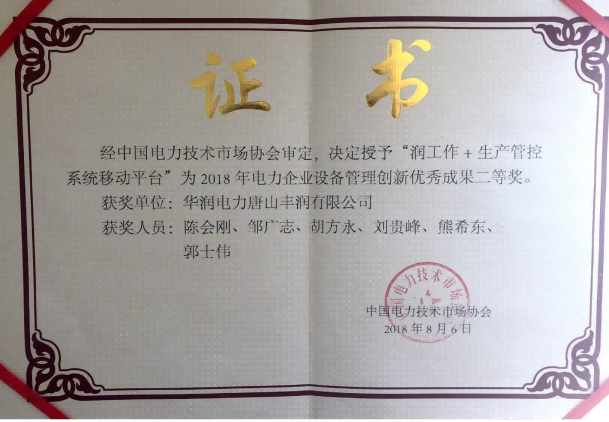 证书
经中国电力技术市场协会审定，决定授予“润工作+生产管控
系统移动平台”为2018年电力企业设备管理创新优秀成果二等奖。
获奖单位：华润电力唐山丰润有限公司
获奖人员：陈会刚、邹广志、胡方永、刘贵峰、熊希东、
郭士伟
中国电力技术市场协会
中国电力技术市场协会
2018年8月6日